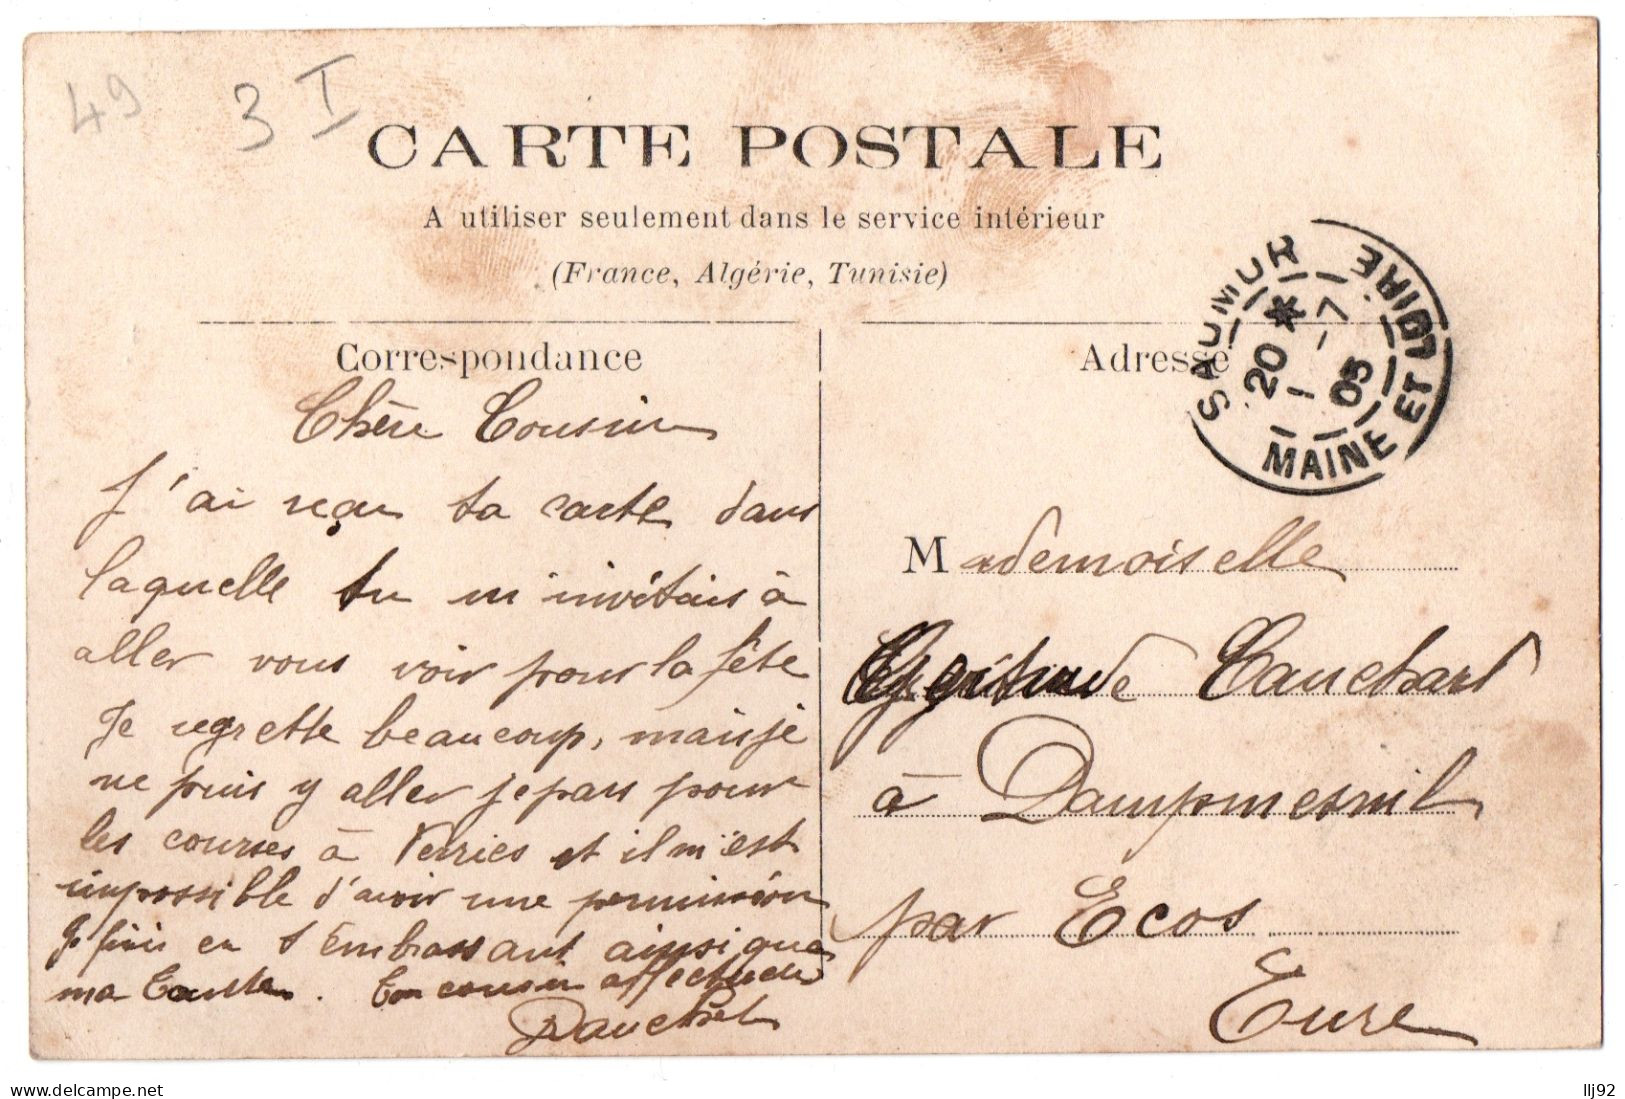 49
3 I
CARTE POSTALE
A utiliser seulement dans le service intérieur
(France, Algérie, Tunisie)
Correspondance
Chère Cousine
J'ai reçu ta carte dans
laquelle tu m'invitais à
aller vous voir pour la fête
Je regrette beaucoup, mais je
ne puis y aller je pars pour
les courses à Verries et il m'est
impossible d'avoir une permission
Je finis en t'embrassant ainsi que
ma Tante. Ton cousin affectueux
Adresse
SAUMUR
MAINE ET LOIRE
20 *
1 -7
05
Mademoiselle
à Dampmesnil
par Ecos
Eure
delcampe.net
llj92